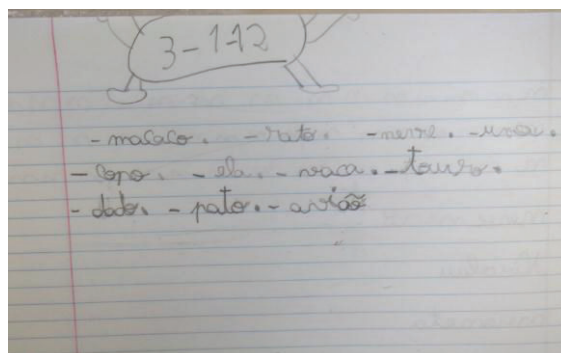 3-1-12
- macaco. - rato. - neve. - uva.
- copo. - ela. - vaca. - touro.
- dado. - pato. - avião